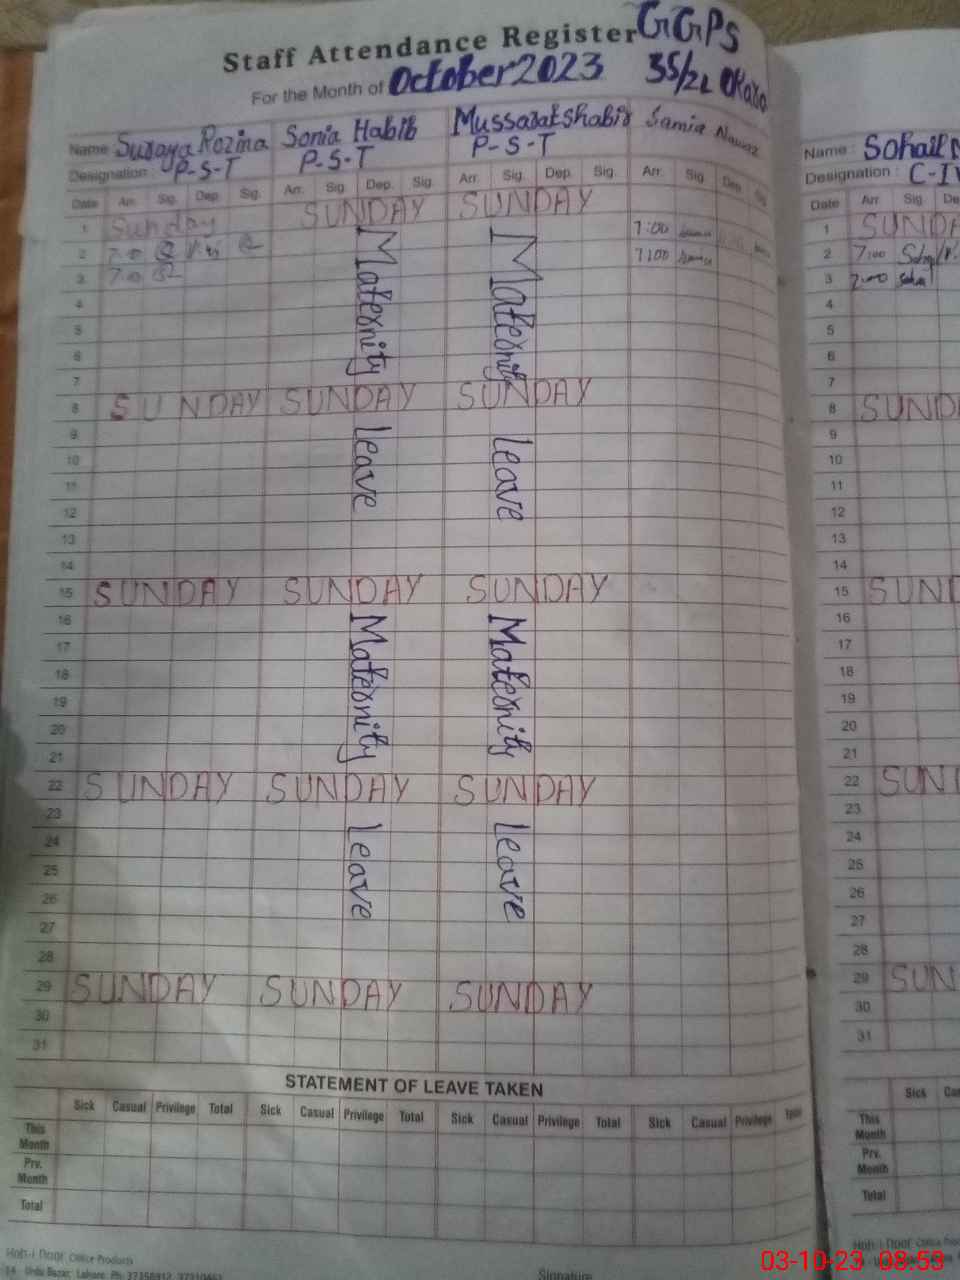 Staff Attendance Register GGPS
For the Month of October 2023 35/2L Okara
Name Suraya Rozina Sonia Habib Mussarat Shabir Samia Nawaz
Designation : P-S-T P-S-T P-S-T
Date Arr. Sig. Dep. Sig. Arr. Sig. Dep. Sig. Arr. Sig. Dep. Sig. Arr. Sig. Dep. Sig.
1 Sunday SUNDAY SUNDAY
2 7:00
3 7:00 7:00
4
5
6
7
Maternity Maternity
8 SUNDAY SUNDAY SUNDAY
9
10
11
12
13
14
leave leave
15 SUNDAY SUNDAY SUNDAY
16
17
18
19
20
21
Maternity Maternity
22 SUNDAY SUNDAY SUNDAY
23
24
25
26
27
28
leave leave
29 SUNDAY SUNDAY SUNDAY
30
31
STATEMENT OF LEAVE TAKEN
Sick Casual Privilege Total Sick Casual Privilege Total Sick Casual Privilege Total Sick Casual Privilege Total
This Month
Prv. Month
Total
Office Products
14 - Urdu Bazar, Lahore. Ph:
Signature
Name : Sohail
Designation : C-IV
Date Arr Sig. De
1 SUNDA
2 7:00
3 7:00
4
5
6
7
8 SUND
9
10
11
12
13
14
15 SUND
16
17
18
19
20
21
22 SUN
23
24
25
26
27
28
29 SUN
30
31
Sick Ca
This Month
Prv. Month
Total
03-10-23 08:53